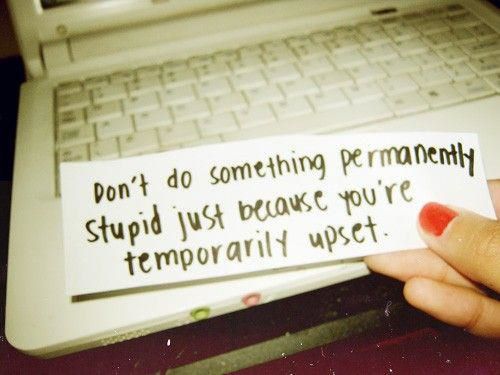 Don't do something permanently
stupid just because you're
temporarily upset.